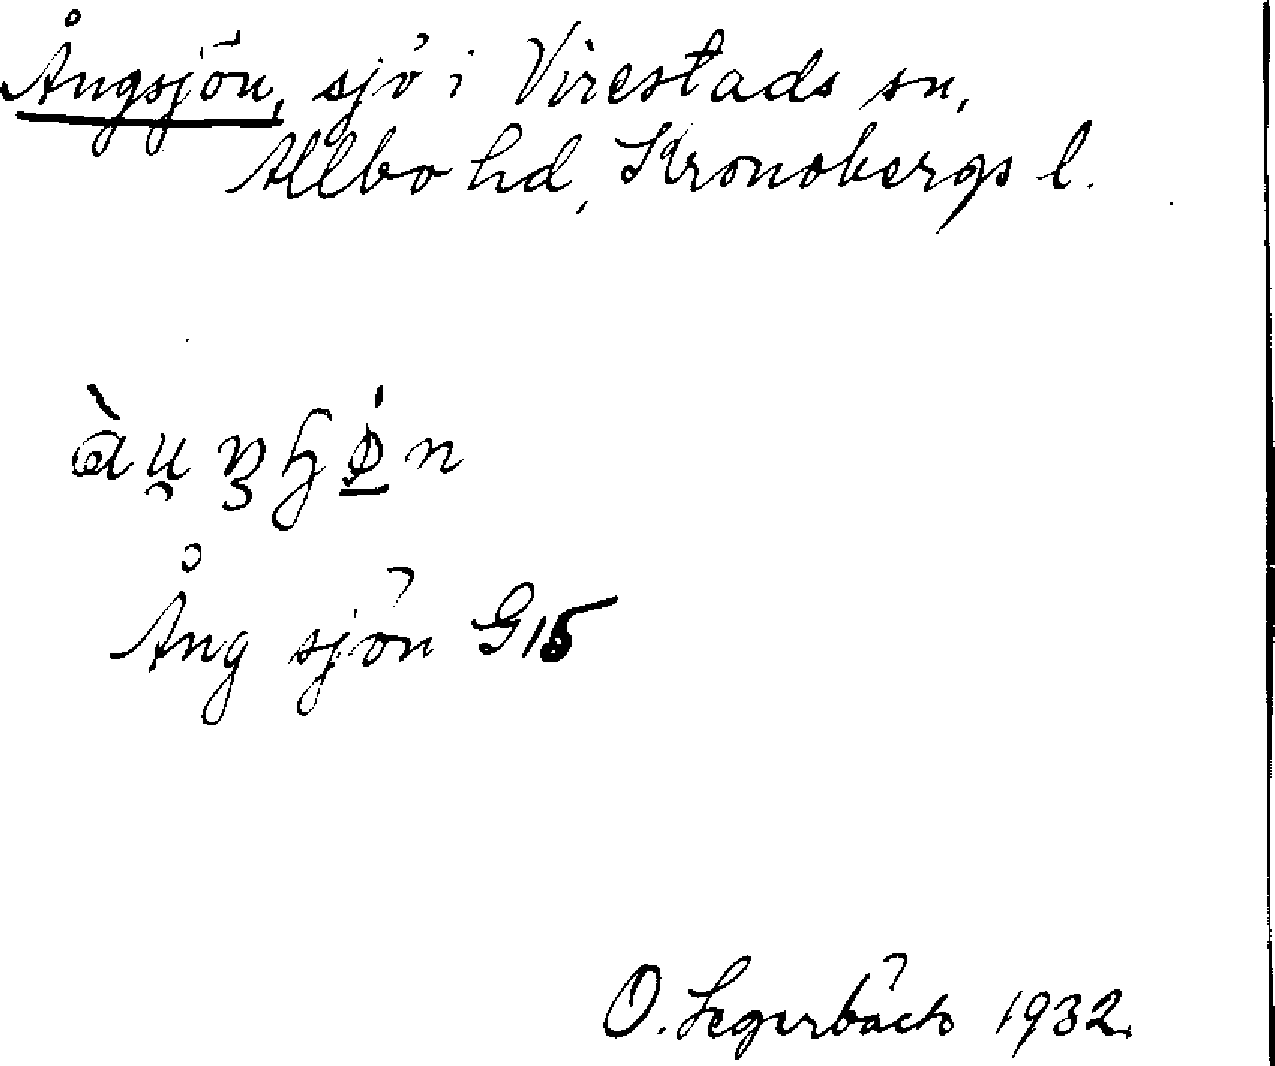 Ångsjön, sjö i Virestads sn,
Allbo hd, Kronobergs l.
Ång sjön G15
O. Segerbäck 1932.